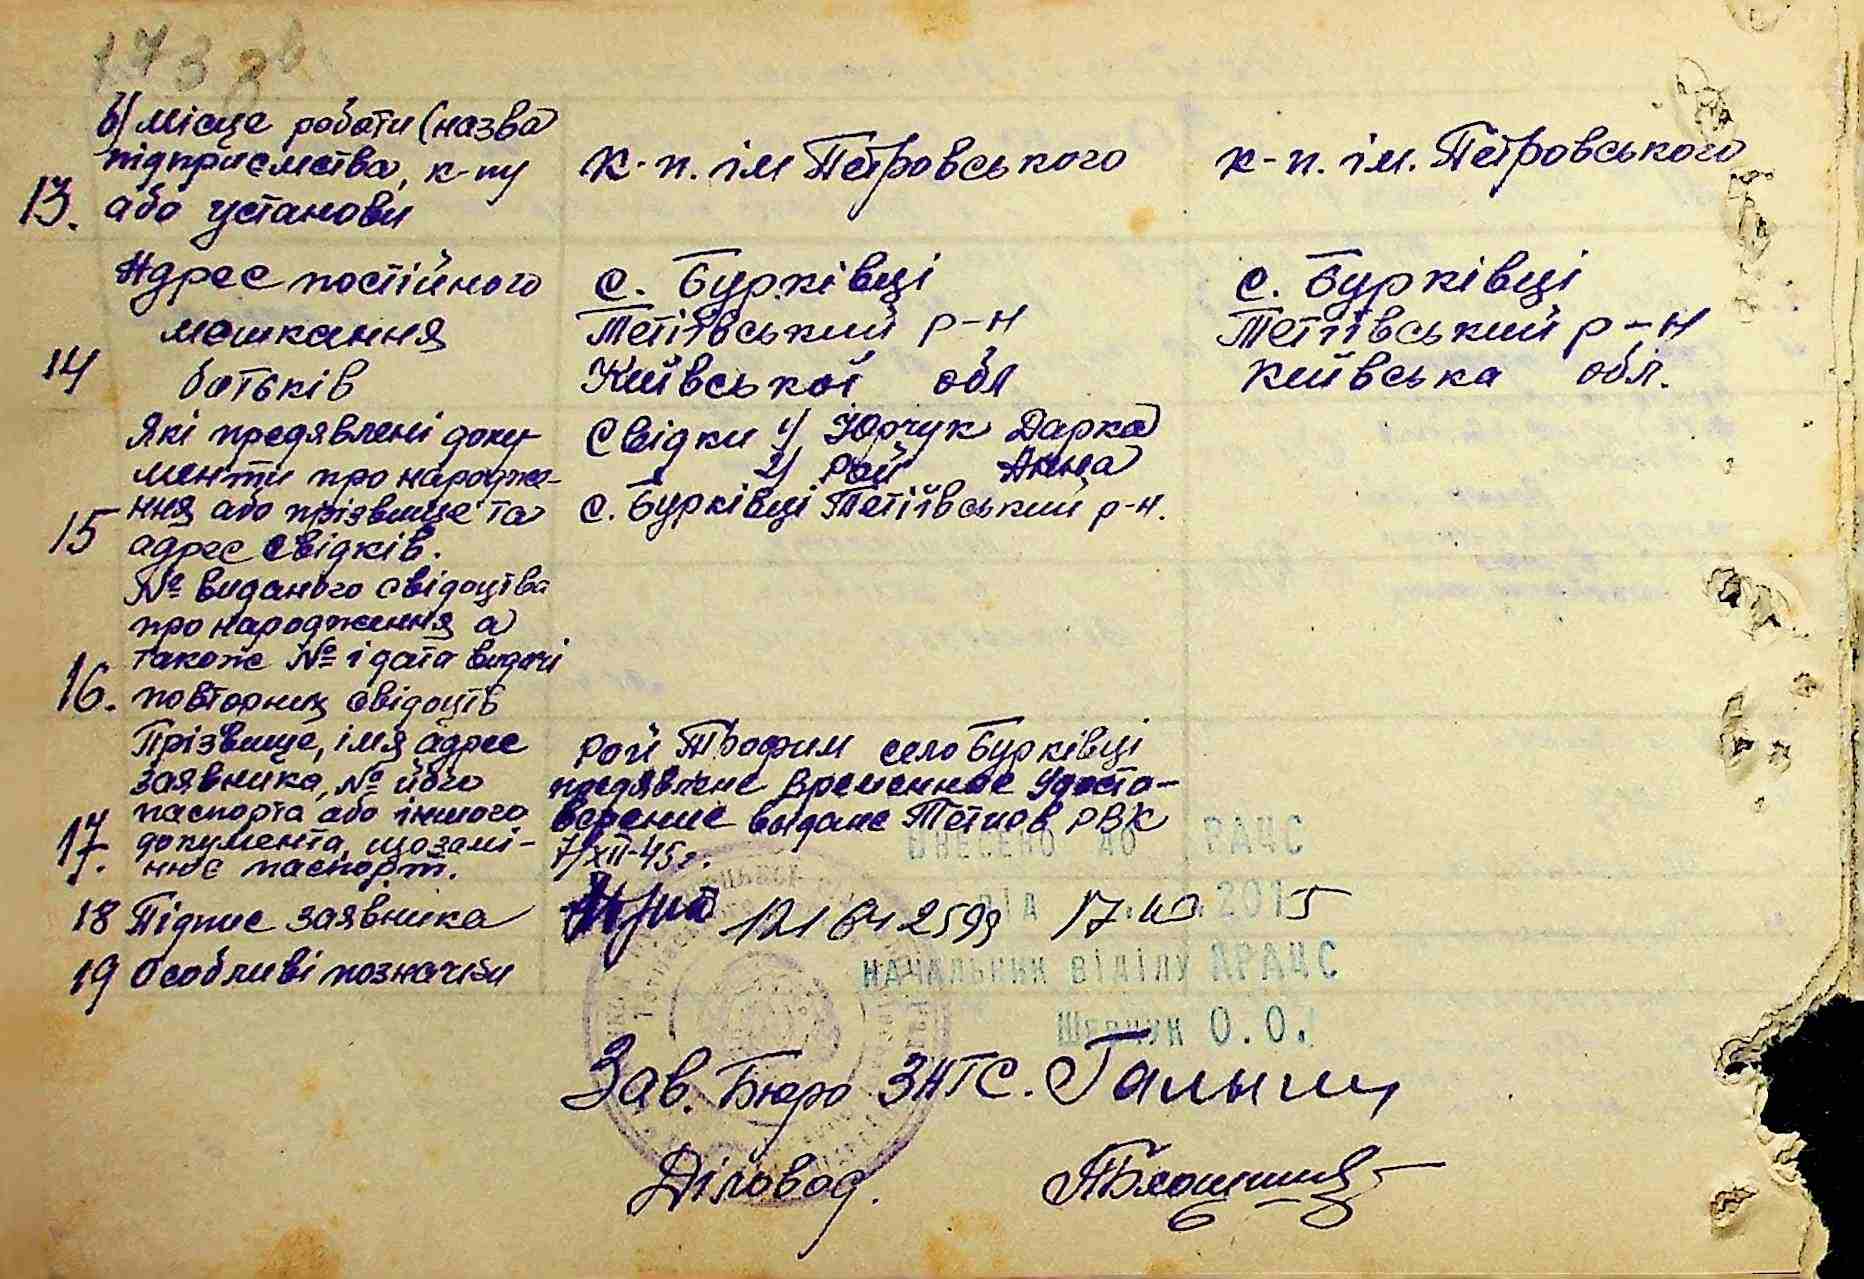 173 зв
б) місце роботи (назва
підприємства, к-пу
13. або установи
к-п. ім Петровського
к-п. ім. Петровського
Адрес постійного
мешкання
14 батьків
с. Бурківці
Тетіївський р-н
Київської обл
с. Бурківці
Тетіївський р-н
Київська обл.
Які предявлені доку-
менти про народже-
ння або прізвище та
15 адрес свідків.
Свідки 1) Юрчук Дарка
2) Рой Анна
с. Бурківці Тетіївський р-н.
№ виданого свідоцтва
про народження а
також № і дата видачі
16. повторних свідоцтв
Прізвище, імя адрес
заявника, № його
паспорта або іншого
17. документа, що замі-
нює паспорт.
Рой Трофим село Бурківці
предявлене временное удосто-
верение выдане Тетиев РВК
7/XII-45г.
ВНЕСЕНО ДО РАЦС
18 Підпис заявника
12164 2599 17 2015
ВІД
19 Особливі позначки
НАЧАЛЬНИК ВІДІЛУ ДРАЦС
О.О.
Зав. Бюро ЗАГС.
Діловод.